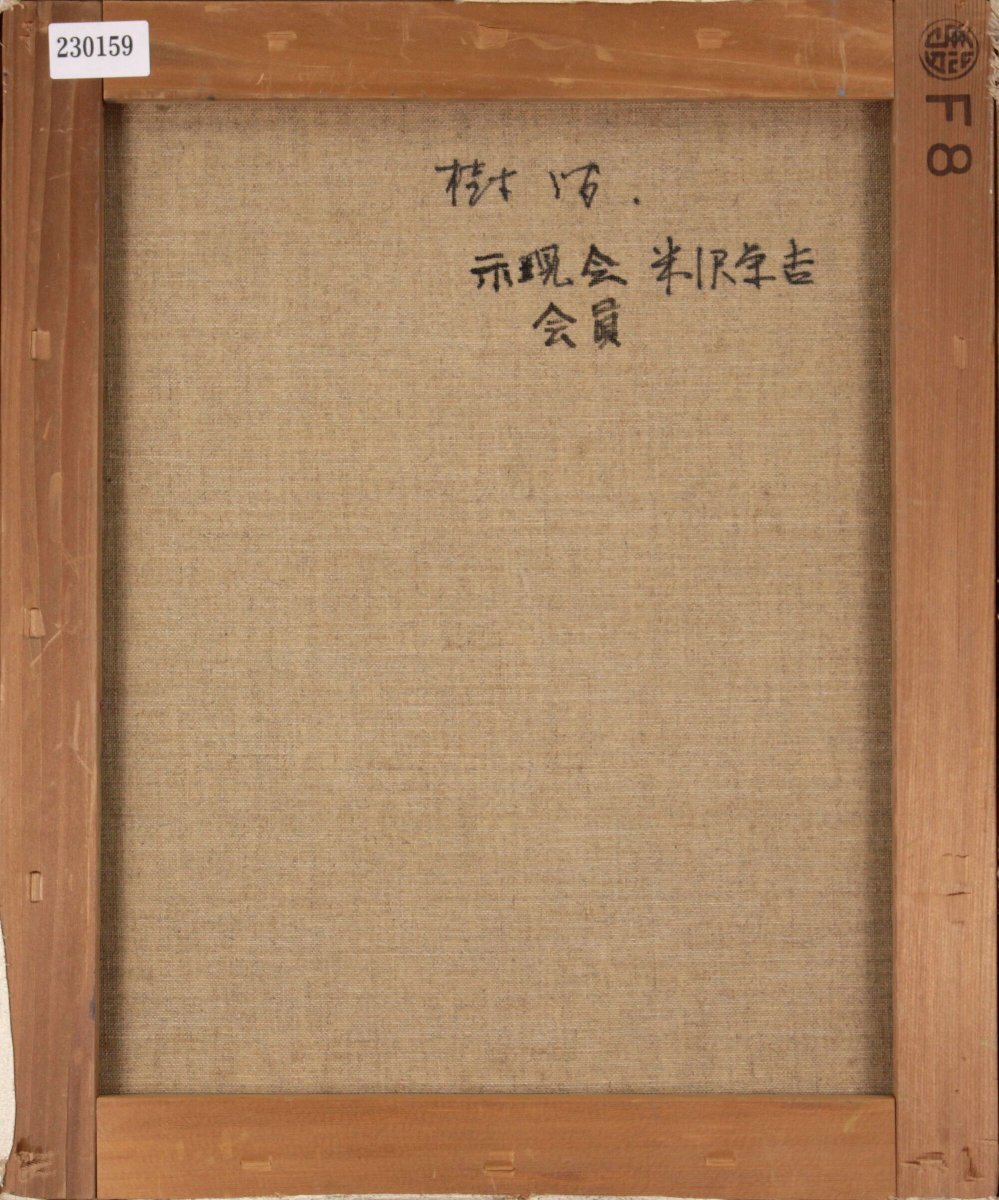 230159
F8
樹
示現会 米沢卓吉
会員